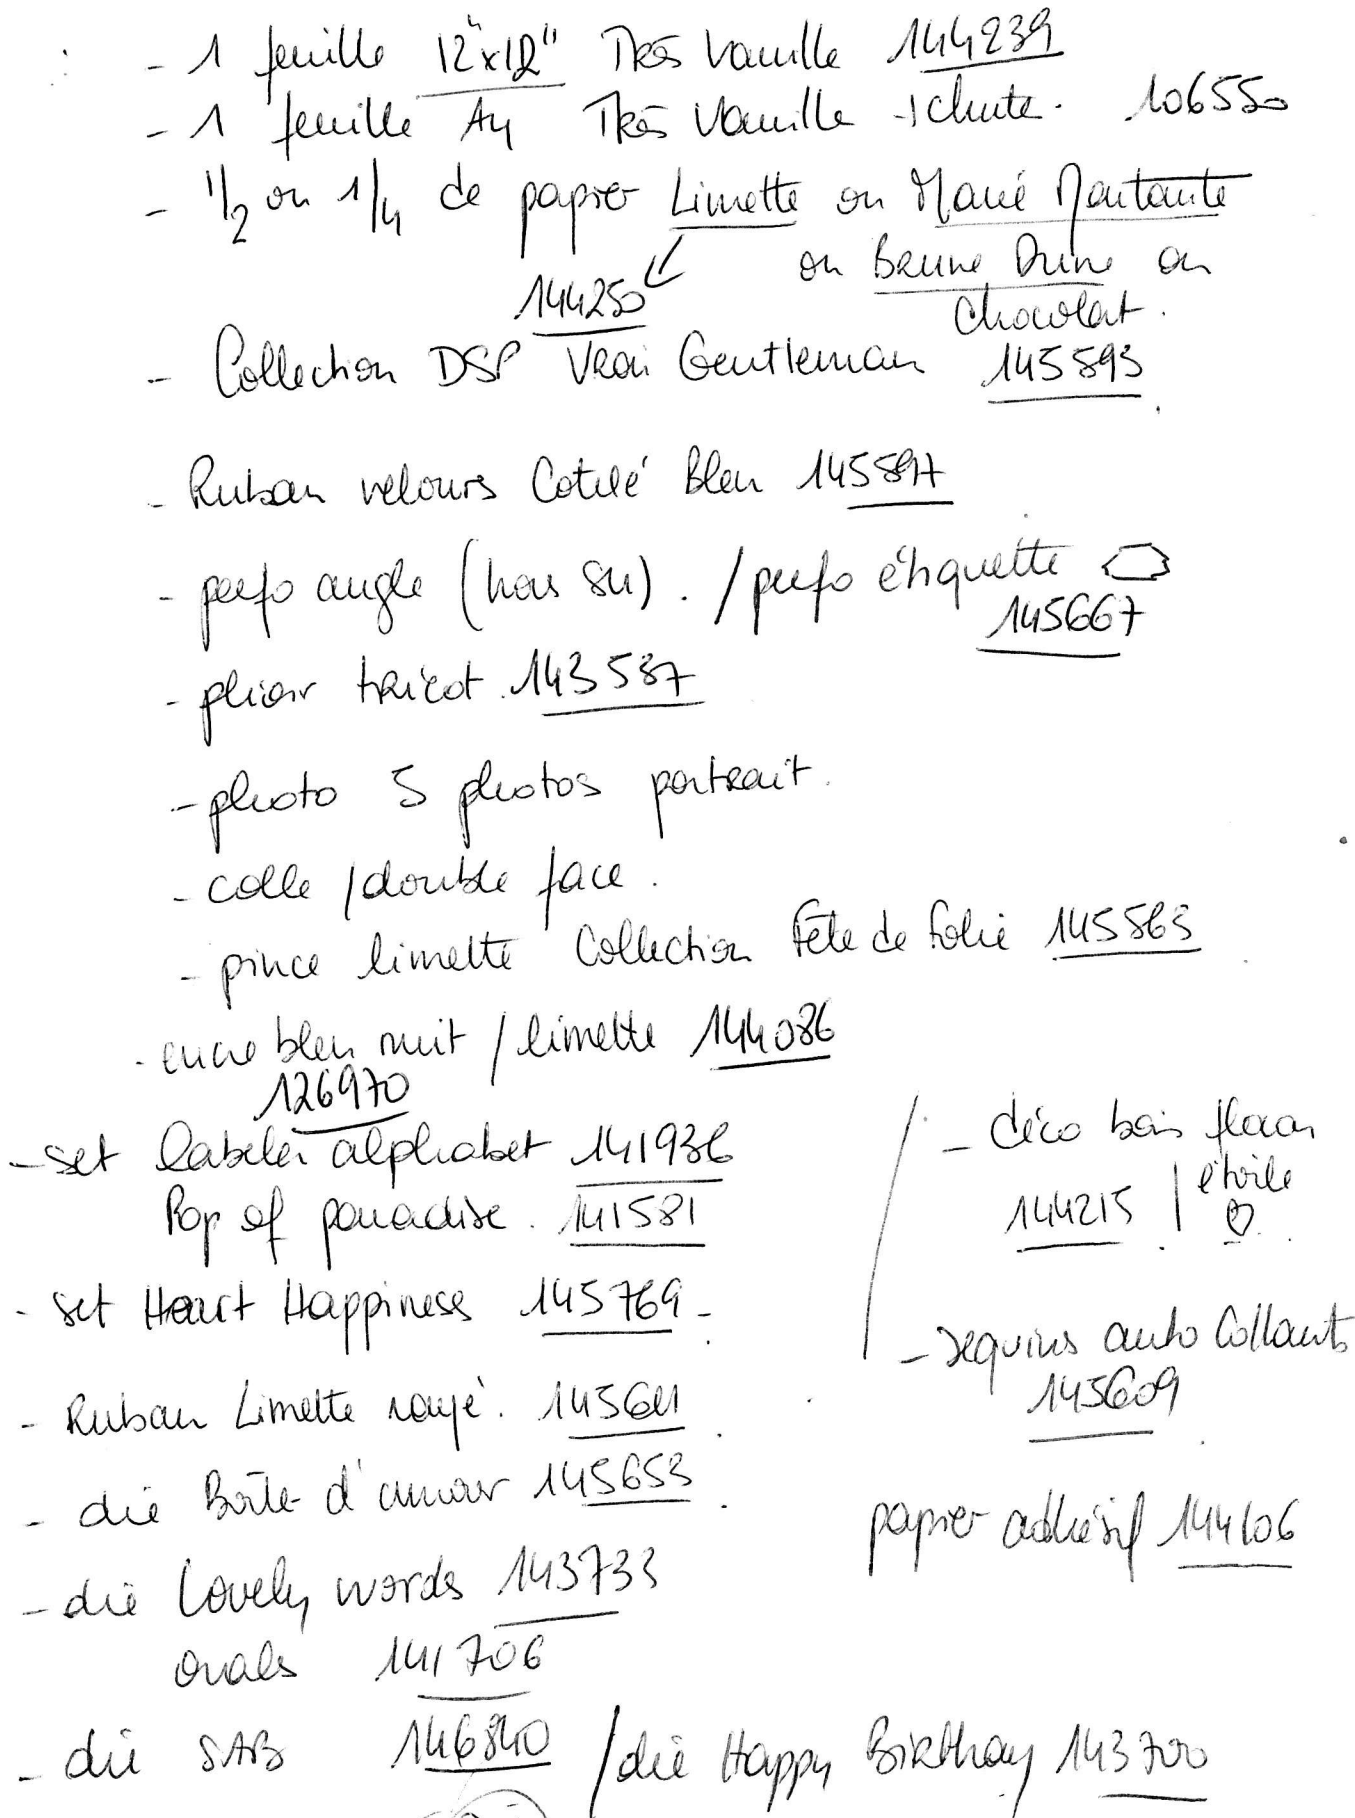 - 1 feuille 12"x12" Très Vanille 144239
- 1 feuille A4 Très Vanille + chute. 106550
- 1/2 ou 1/4 de papier Limette ou Marée Montante
ou Brune Dune ou
144250
Chocolat.
- Collection DSP Vrai Gentleman 145593
- Ruban velours Cotelé Bleu 145597
- perfo angle (hors SU). / perfo étiquette
145667
- plioir tricot. 143587
- photo 5 photos portrait.
- colle / double face.
- pince limette Collection Fête de folie 145563
- encre bleu nuit / limette 144086
126970
- set Labeler alphabet 141936
Pop of paradise. 141581
- set Heart Happiness 145769 -
- Ruban Limette rayé. 145611
- die Boîte d'amour 145653
- die Lovely words 143733
ovals 141706
- die SAB 146840 / die Happy Birthay 143700
- déco bois flocon
144215 | étoile
- sequins auto Collants
145609
papier adhésif 144106